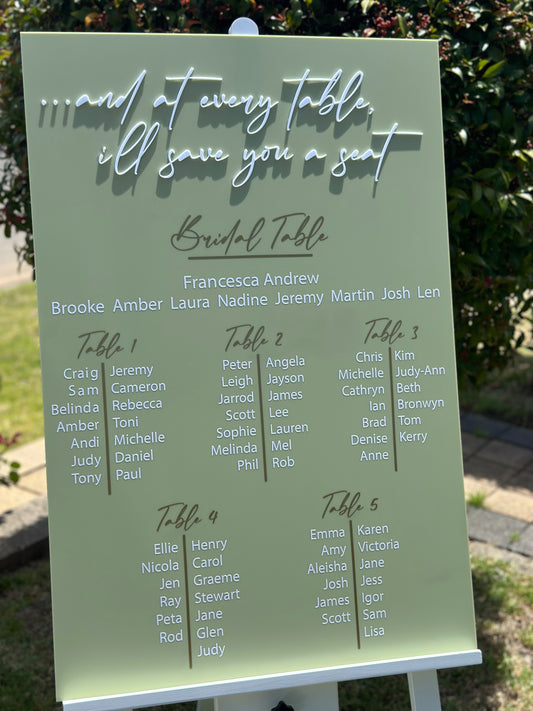 ...and at every table,
i'll save you a seat
Bridal Table
Francesca Andrew
Brooke Amber Laura Nadine Jeremy Martin Josh Len
Table 1
Craig Jeremy
Sam Cameron
Belinda Rebecca
Amber Toni
Andi Michelle
Judy Daniel
Tony Paul
Table 2
Peter Angela
Leigh Jayson
Jarrod James
Scott Lee
Sophie Lauren
Melinda Mel
Phil Rob
Table 3
Chris Kim
Michelle Judy-Ann
Cathryn Beth
Ian Bronwyn
Brad Tom
Denise Kerry
Anne
Table 4
Ellie Henry
Nicola Carol
Jen Graeme
Ray Stewart
Peta Jane
Rod Glen
Judy
Table 5
Emma Karen
Amy Victoria
Aleisha Jane
Josh Jess
James Igor
Scott Sam
Lisa